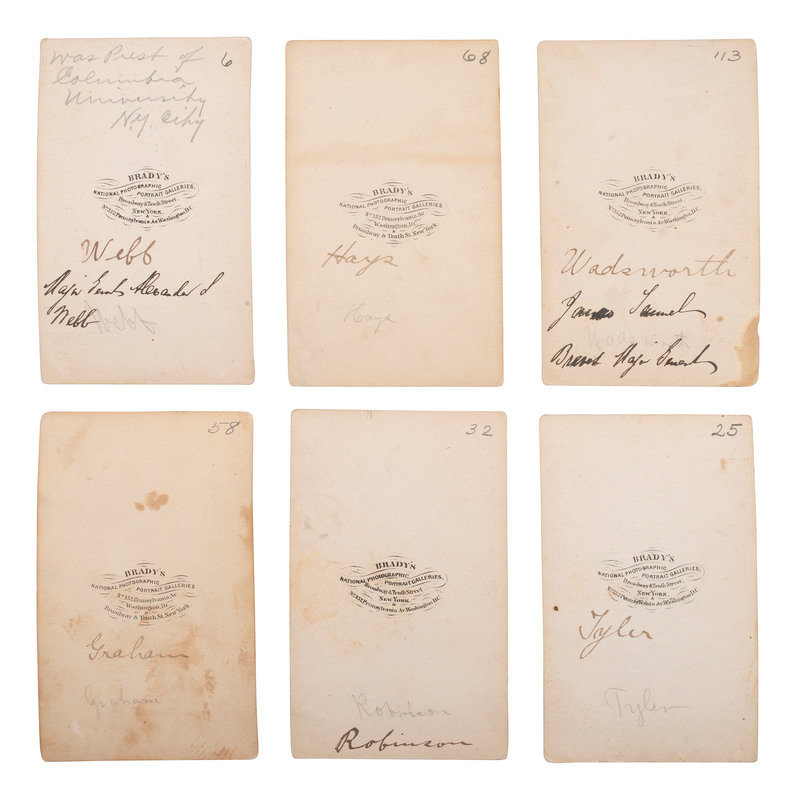 Was Prest of
Columbia
University
N.Y. City
6
BRADY'S
NATIONAL PHOTOGRAPHIC
PORTRAIT GALLERIES,
Broadway & Tenth Street
NEW YORK
&
No. 352 Pennsylvania Av. Washington, D.C.
Webb
Major Genl Alexander S
Webb
Webb
68
BRADY'S
NATIONAL PHOTOGRAPHIC
PORTRAIT GALLERIES
No. 352 Pennsylvania Av.
Washington, D.C.
&
Broadway & Tenth St. New York.
Hays
Hays
113
BRADY'S
NATIONAL PHOTOGRAPHIC
PORTRAIT GALLERIES,
Broadway & Tenth Street
NEW YORK
&
No. 352 Pennsylvania Av. Washington, D.C.
Wadsworth
James Samuel
Wadsworth
Brevet Major General
58
BRADY'S
NATIONAL PHOTOGRAPHIC
PORTRAIT GALLERIES
No. 352 Pennsylvania Av.
Washington, D.C.
&
Broadway & Tenth St. New York
Graham
Graham
32
BRADY'S
NATIONAL PHOTOGRAPHIC
PORTRAIT GALLERIES,
Broadway & Tenth Street
NEW YORK
&
No. 352 Pennsylvania Av. Washington, D.C.
Robinson
Robinson
25
BRADY'S
NATIONAL PHOTOGRAPHIC
PORTRAIT GALLERIES,
Broadway & Tenth Street
NEW YORK
&
No. 352 Pennsylvania Av. Washington, D.C.
Tyler
Tyler